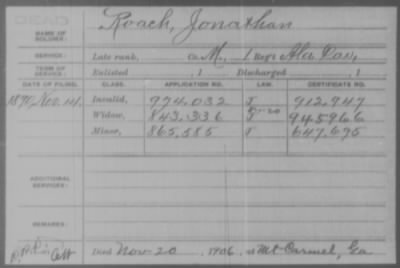 NAME OF SOLDIER: Roach, Jonathan
SERVICE: Late rank, Co. M, 1 Reg't Ala Cav,
TERM OF SERVICE: Enlisted , 1 Discharged , 1
DATE OF FILING. CLASS. APPLICATION NO. LAW. CERTIFICATE NO.
1890, Nov. 14, Invalid, 974,032 J 912,947
Widow, 843,336 945966
Minor, 865,585 J 647,695
ADDITIONAL SERVICES:
REMARKS:
Died Nov 20 , 1906, at Mt Carmel, Ga